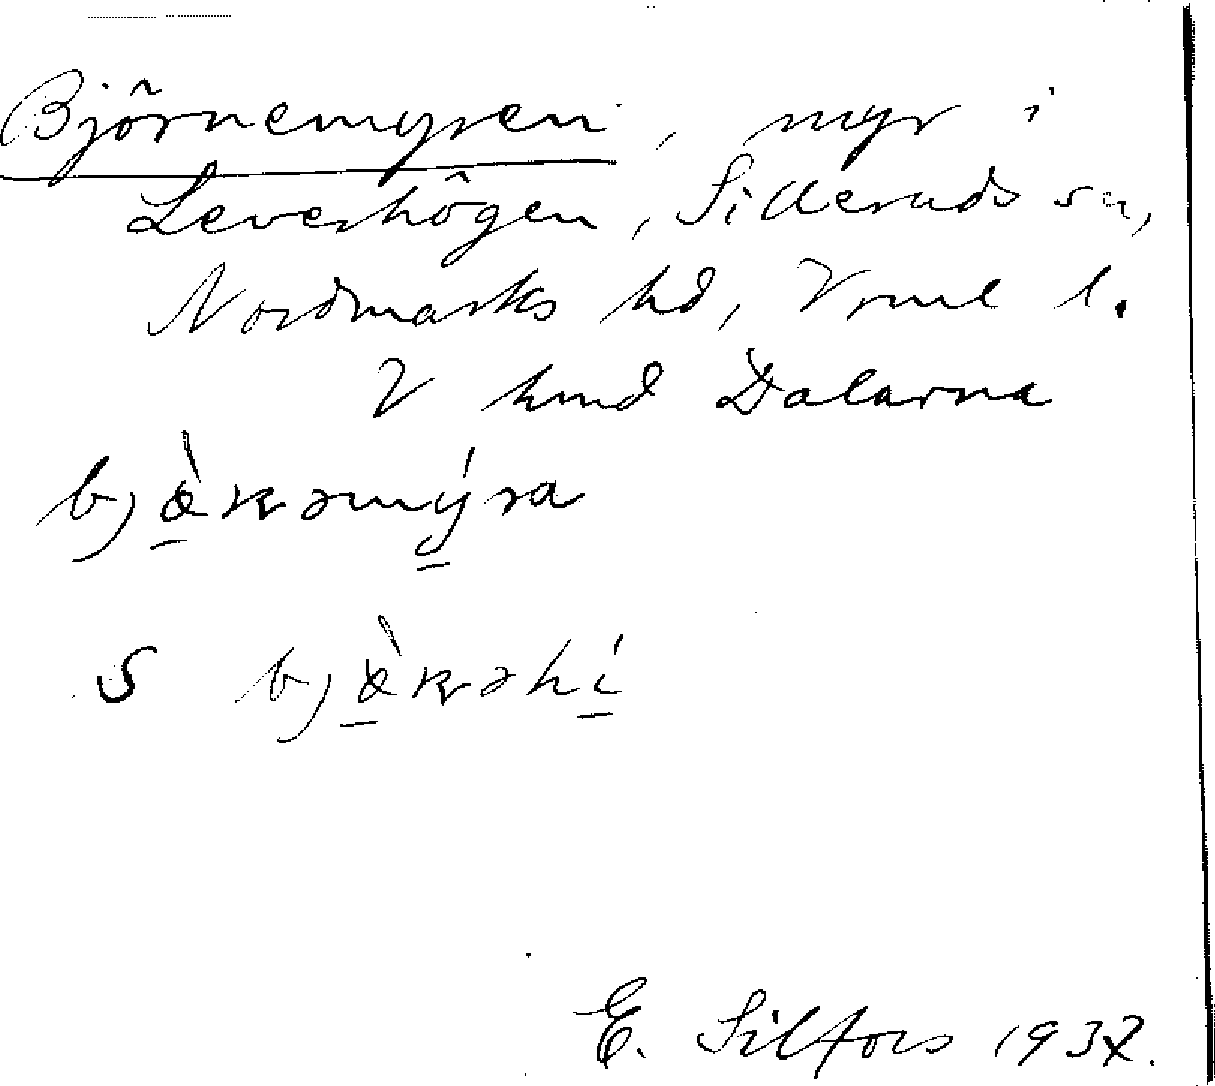 Björnemyren, myr i
Leverhögen, Silleruds sn,
Nordmarks hd, Vrml l.
V kund Dalarna
bjæ̀ʀəmýra
S bjæ̀ʀəhí
E. Silfors 1937.